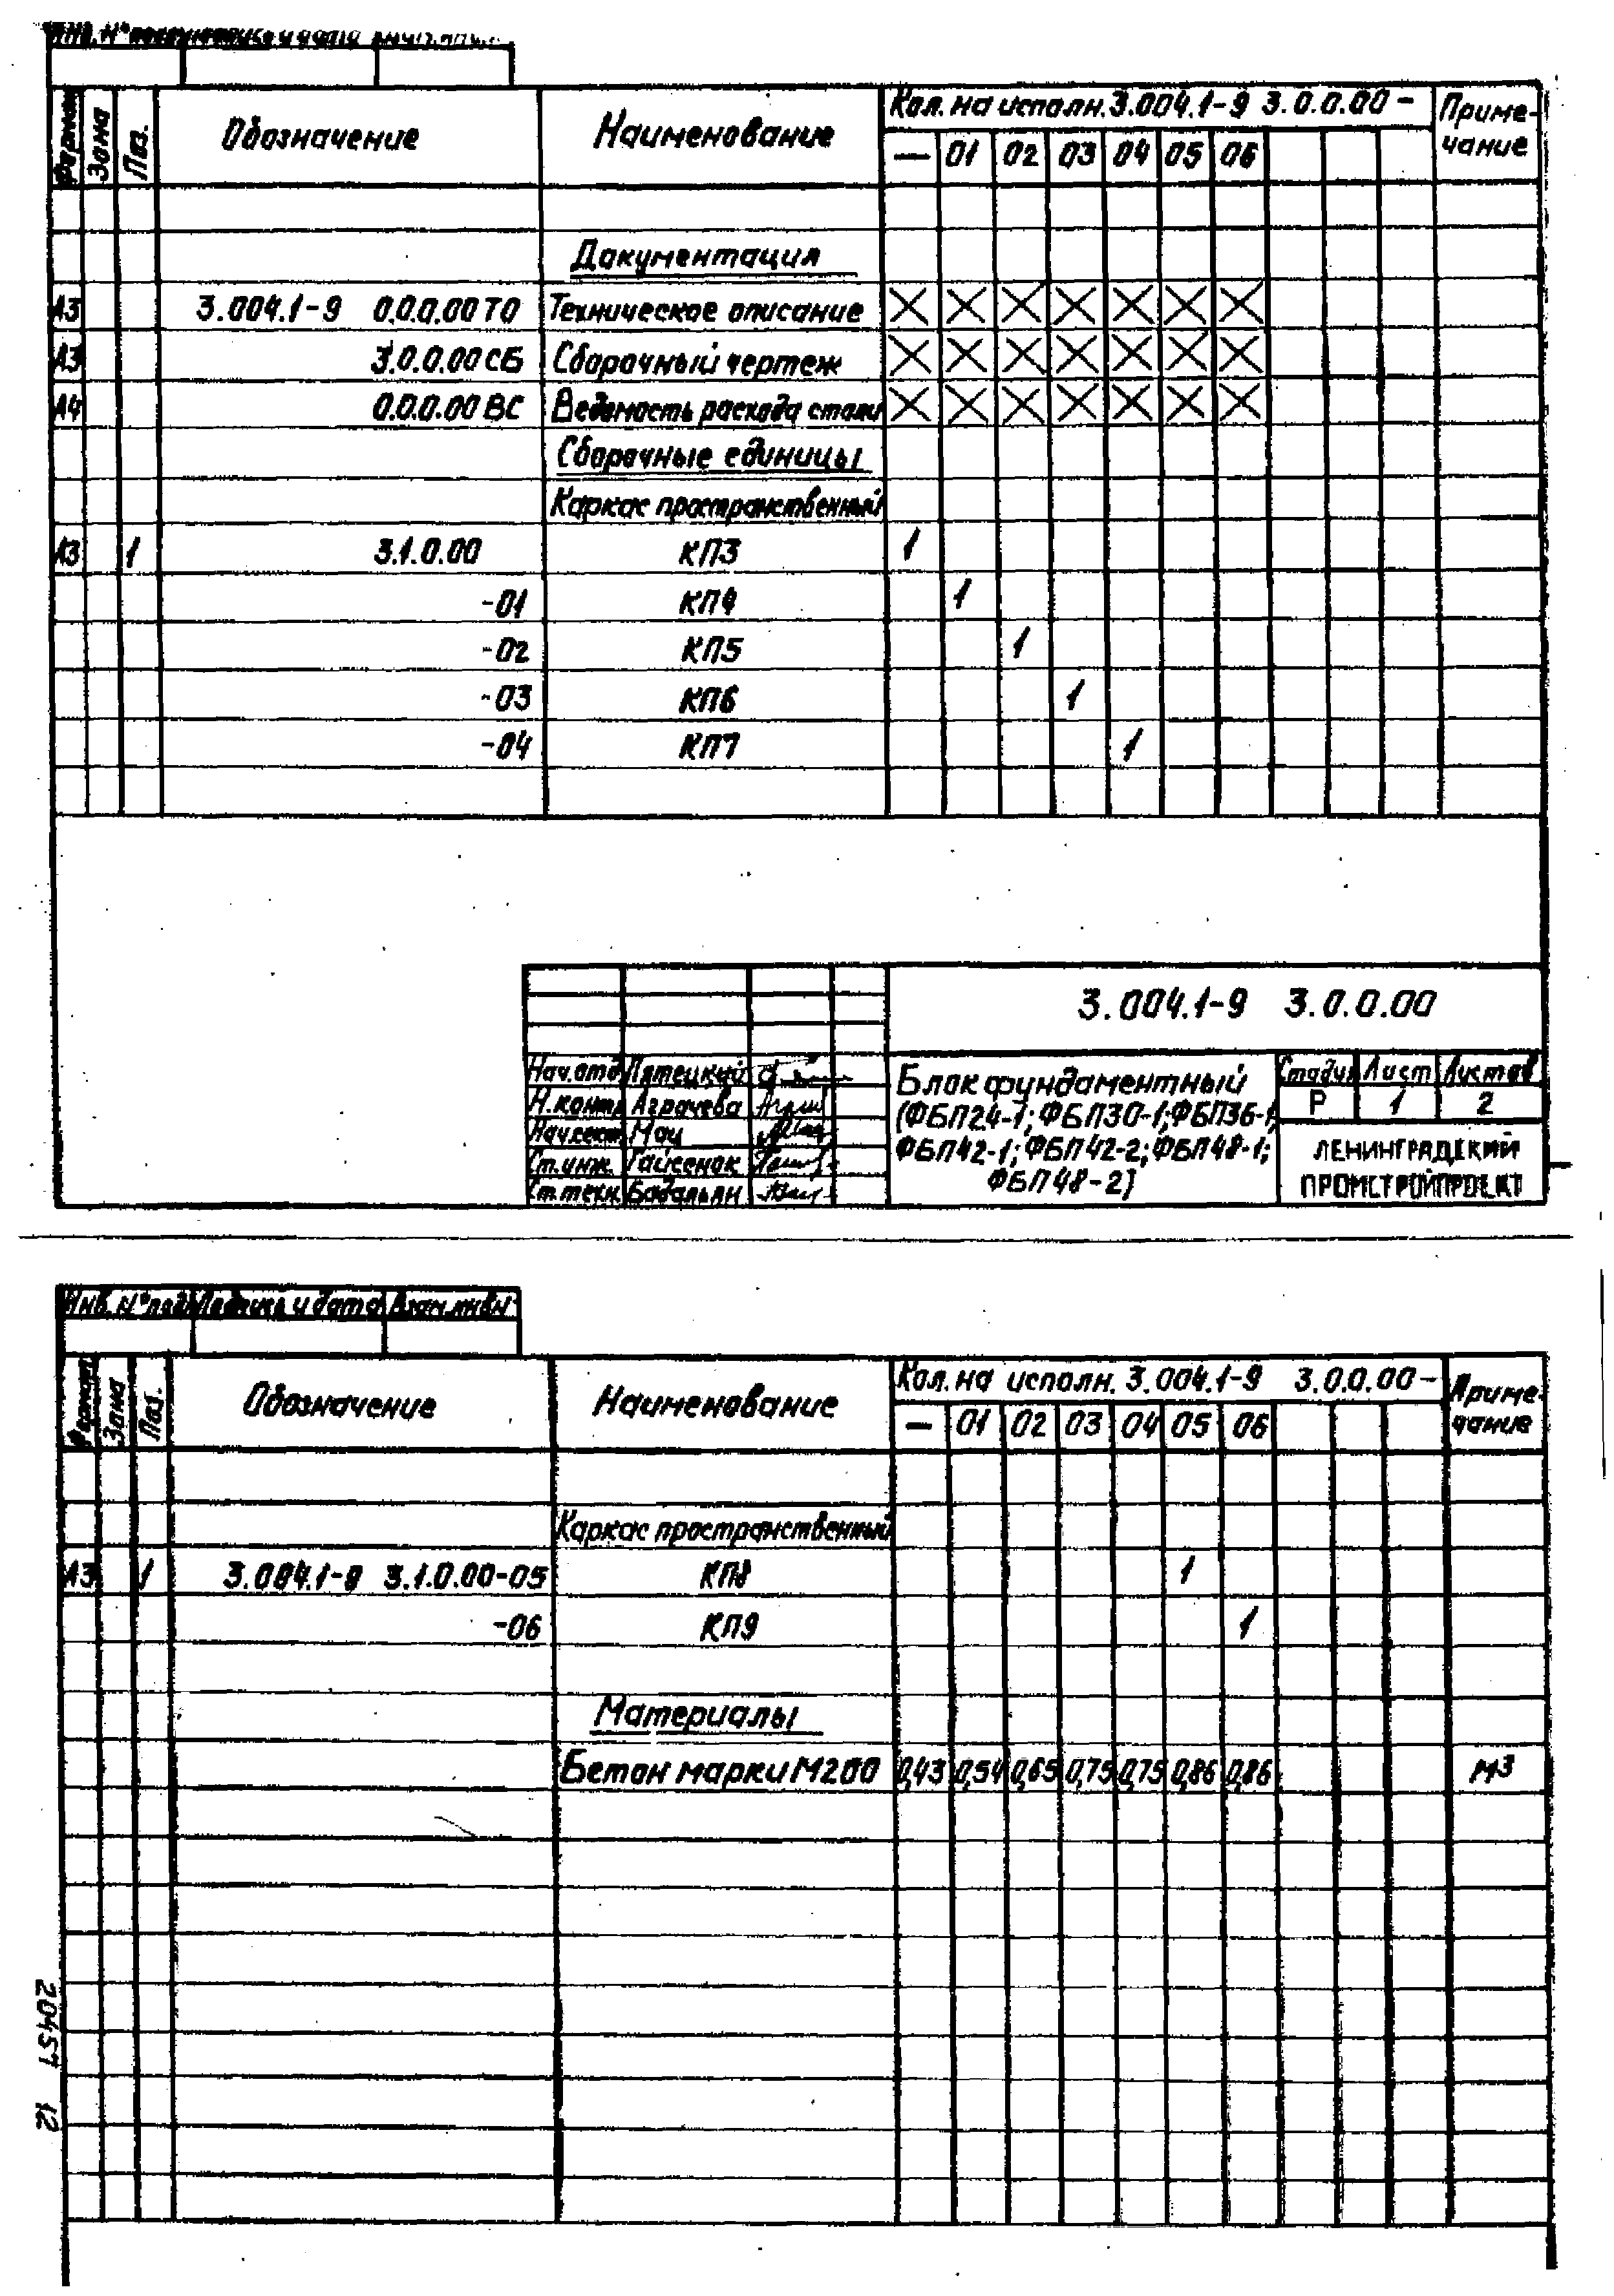 Инв. N°
Формат
Зона
Поз.
Обозначение
Наименование
Кол. на исполн. 3.004.1-9 3.0.0.00 -
Приме-
чание
— 01 02 03 04 05 06
Документация
А3 3.004.1-9 0.0.0.00 ТО Техническое описание
А3 3.0.0.00 СБ Сборочный чертеж
А4 0.0.0.00 ВС Ведомость расхода стали
Сборочные единицы
Каркас пространственный
А3 1 3.1.0.00 КП3 1
-01 КП4 1
-02 КП5 1
-03 КП6 1
-04 КП7 1
3.004.1-9 3.0.0.00
Нач.отд. Пятецкий
Н.контр. Аграчева
Нач.сект. Мац
Ст.инж. Гайсенок
Ст.техн. Бадальян
Блок фундаментный
(ФБП24-1; ФБП30-1; ФБП36-1;
ФБП42-1; ФБП42-2; ФБП48-1;
ФБП48-2)
Стадия Лист Листов
Р 1 2
ЛЕНИНГРАДСКИЙ
ПРОМСТРОЙПРОЕКТ
Инв. N° подл. Подпись и дата Взам.инв.N
Формат
Зона
Поз.
Обозначение
Наименование
Кол. на исполн. 3.004.1-9 3.0.0.00 -
Приме-
чание
— 01 02 03 04 05 06
Каркас пространственный
А3 1 3.004.1-9 3.1.0.00-05 КП8 1
-06 КП9 1
Материалы
Бетон марки М200 0,43 0,54 0,65 0,75 0,75 0,86 0,86 м3
20457 12